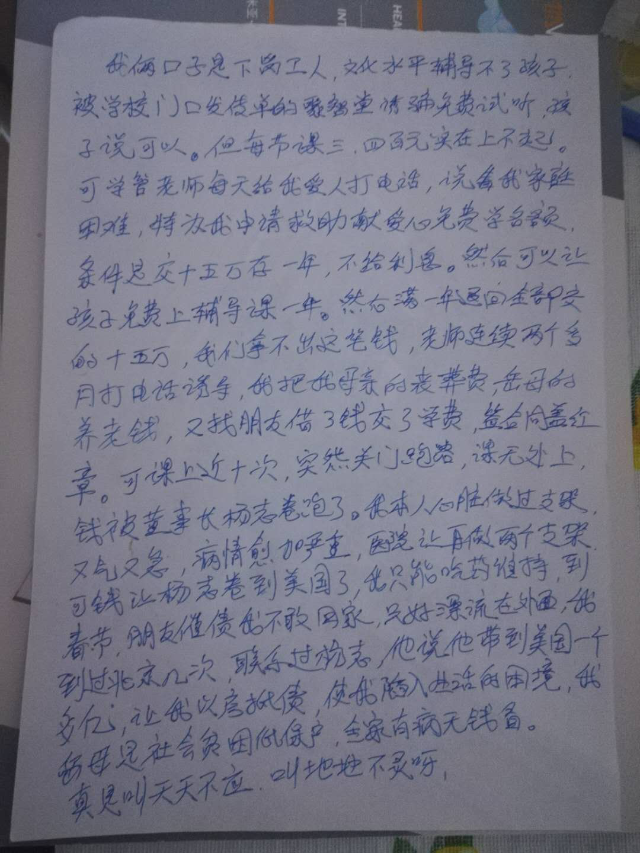 INT
HEA
我俩口子是下岗工人，文化水平辅导不了孩子，
被学校门口发传单的聚智堂请确免费试听，孩
子说可以。但每节课三、四百元实在上不起。
可学管老师每天给我爱人打电话，说看我家庭
困难，特为我申请救助献爱心免费学名额，
条件是交十五万存一年，不给利息。然后可以让
孩子免费上辅导课一年。然后满一年退回全部交
的十五万，我们拿不出这笔钱，老师连续两个多
月打电话诱导，我把我母亲的丧葬费，岳母的
养老钱，又找朋友借了钱交了学费，签合同盖红
章。可课上近十次，突然关门跑路，课无处上，
钱被董事长杨志卷跑了。我本人心脏做过支架，
又气又急，病情愈加严重，医院让再做两个支架
可钱让杨志卷到美国了，我只能吃药维持，到
春节，朋友催债我不敢回家，只好漂流在外面，我
到过北京几次，联系过杨志，他说他带到美国一个
多亿，让我以房抵债，使我陷入生活的困境，我
岳母是社会贫困低保户，全家有病无钱看。
真是叫天天不应，叫地地不灵呀，